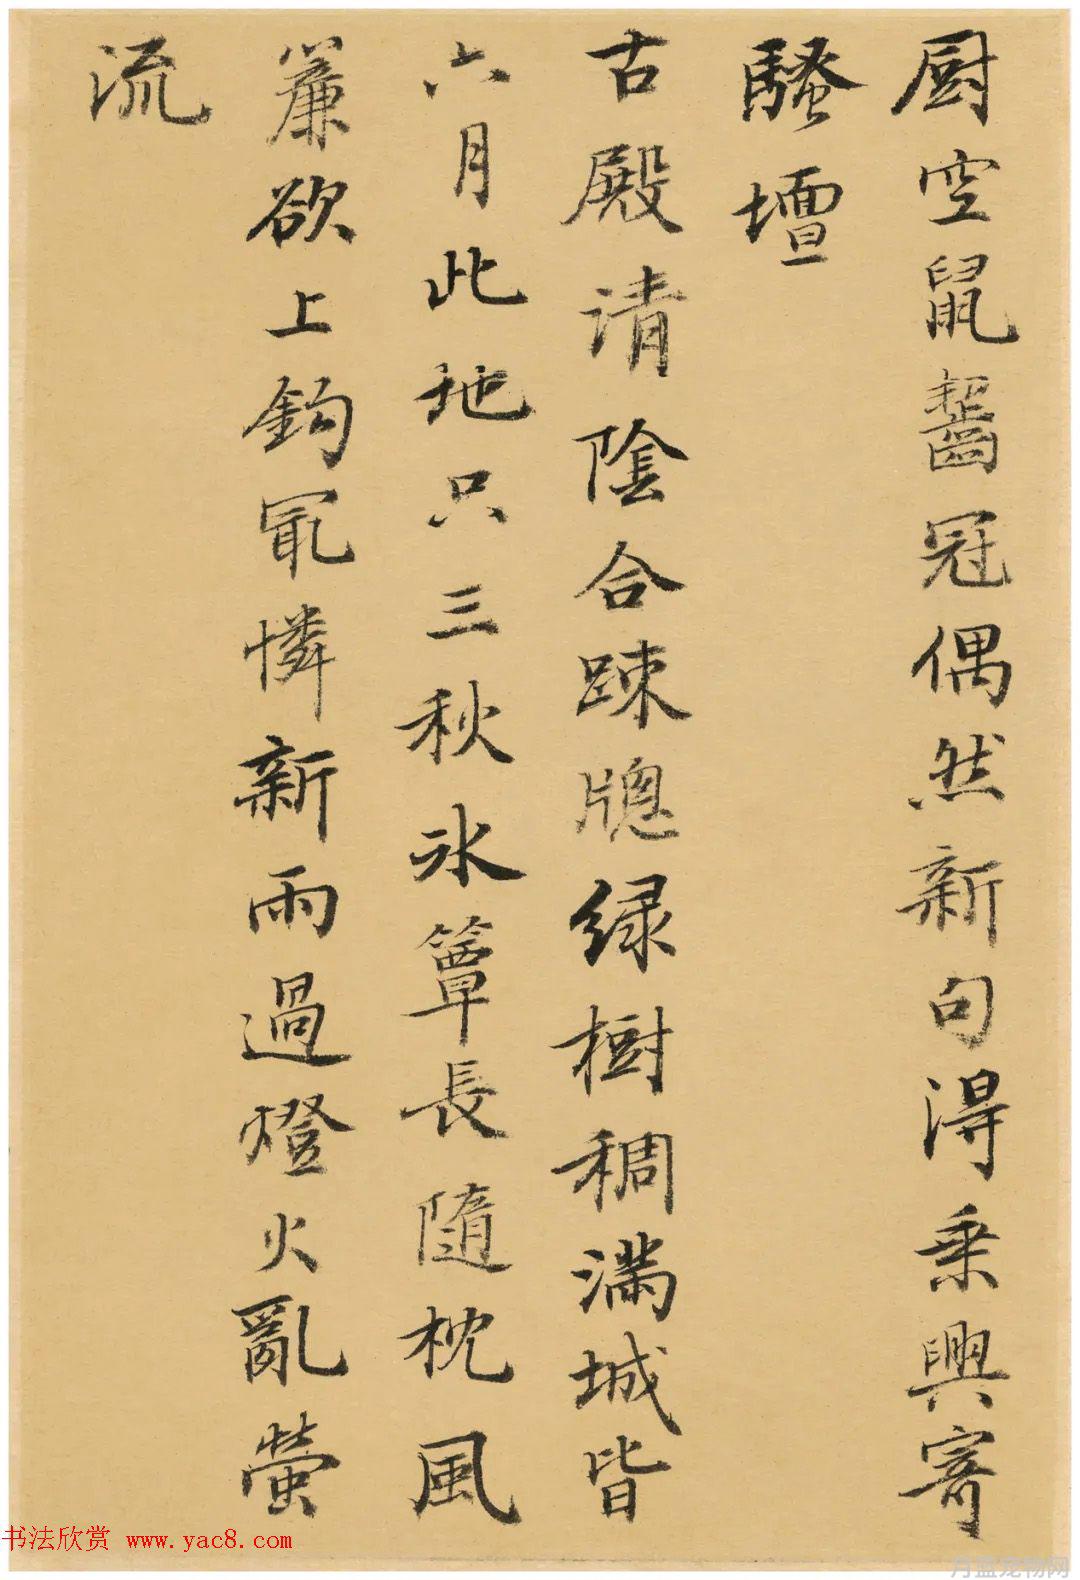 厨空鼠齧冠偶然新句得乘興寄
騷壇
古殿請陰合疎牎緑樹稠滿城皆
六月此地只三秋氷簟長隨枕風
簾欲上鈎冣憐新雨過燈火亂螢
流
书法欣赏 www.yac8.com
月蓝宠物网